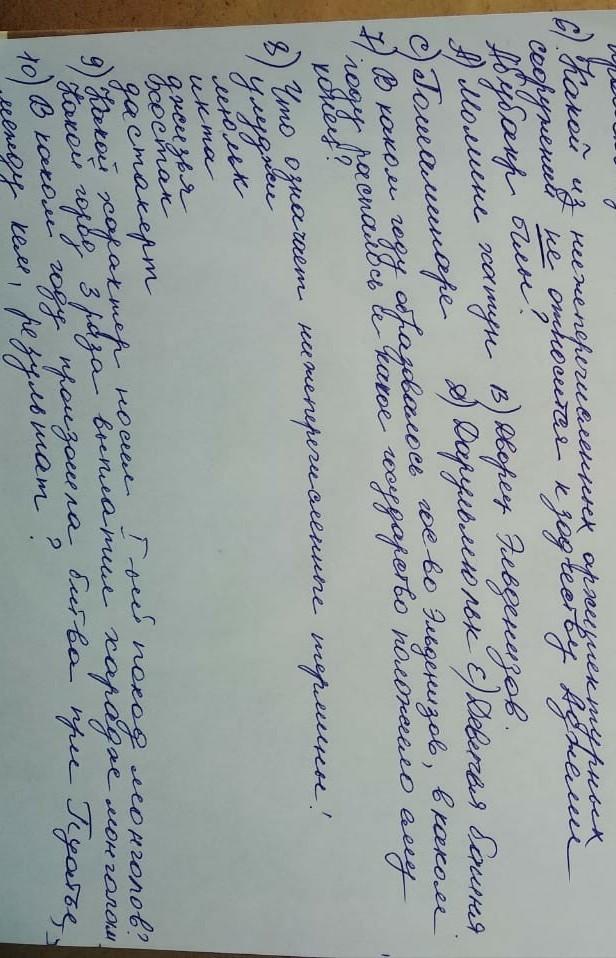 6) Какой из нижеперечисленных архитектурных
сооружений не относится к зодчеству Аджами
Абубакр оглы?
A) Момине хатун B) Дворец Эльденизов.
C) Гошаминаре D) Дарульмюльк E) Девичья башня
7) В каком году образовалось гос-во Эльденизов, в каком
году распалось и какое государство положило ему
конец?
8) Что означает нижеперечисленные термины!
улуджи
мюльк
икта
джизья
востак
дастакерт
9) Какой характер носил I-ый поход монголов?
Какой город 3 раза выплатил харадж монголам
10) В каком году произошла битва при Пуатье,
между кем, результат?